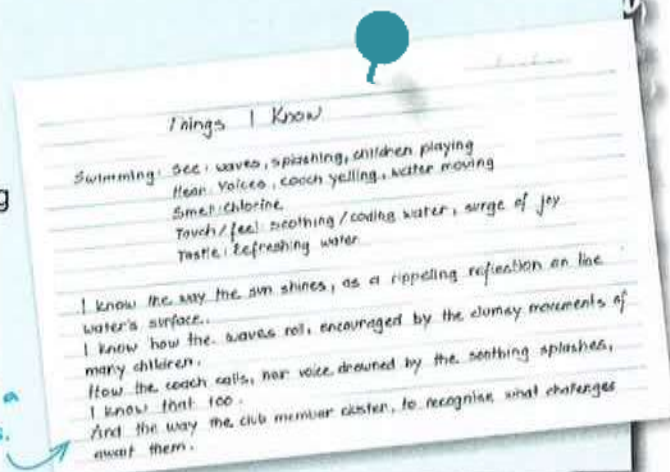 Things I Know
Swimming: See: waves, splashing, children playing
Hear: Voices, coach yelling, water moving
Smell: Chlorine
Touch/feel: soothing/cooling water, surge of joy
Taste: Refreshing water
I know the way the sun shines, as a rippeling reflection on the
water's surface.
I know how the waves roll, encouraged by the clumsy movements of
many children.
How the coach calls, her voice drowned by the soothing splashes,
I know that too.
And the way the club member cluster, to recognise what chalenges
await them.
g
a
s.